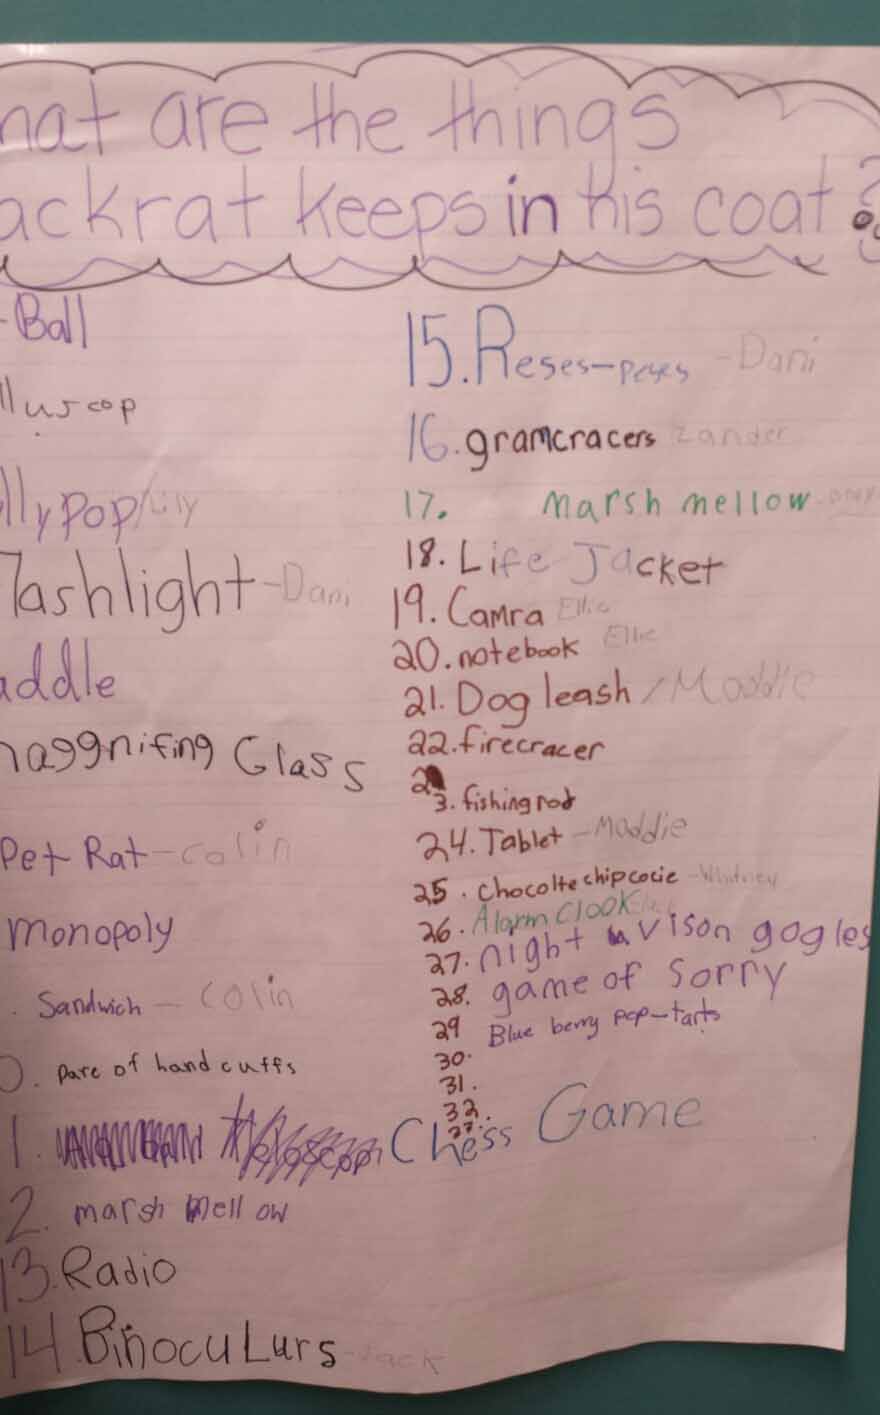 hat are the things
ackrat keeps in his coat?
-Ball
lluscop
llypop/Lily
lashlight-Dani
addle
maggnifing Glass
Pet Rat-colin
monopoly
. Sandwich - Colin
0. parc of hand cuffs
1. Chess Game
2. marsh mellow
13. Radio
14. Binoculurs-Jack
15. Reses-peses -Dani
16. gramcracers zander
17. marsh mellow
18. Life Jacket
19. Camra Ellie
20. notebook Ellie
21. Dog leash /Maddie
22. firecracer
23. fishing rod
24. Tablet -Maddie
25. chocolte chip cocie -Whitney
26. Alarm Clook
27. night vison gogles
28. game of Sorry
29 Blue berry pop-tarts
30.
31.
32.